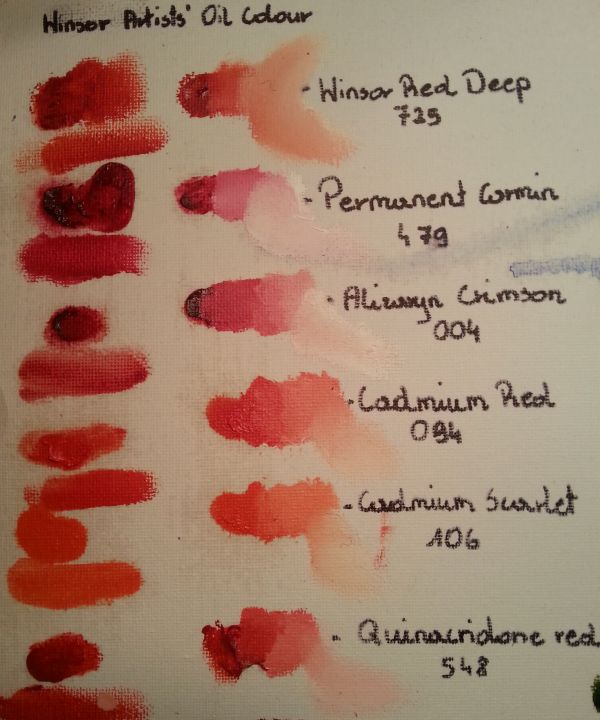 Winsor Artists' Oil Colour
Winsor Red Deep
725
Permanent Carmin
479
Alizaryn Crimson
004
Cadmium Red
094
Cadmium Scarlet
106
Quinacridone red
548